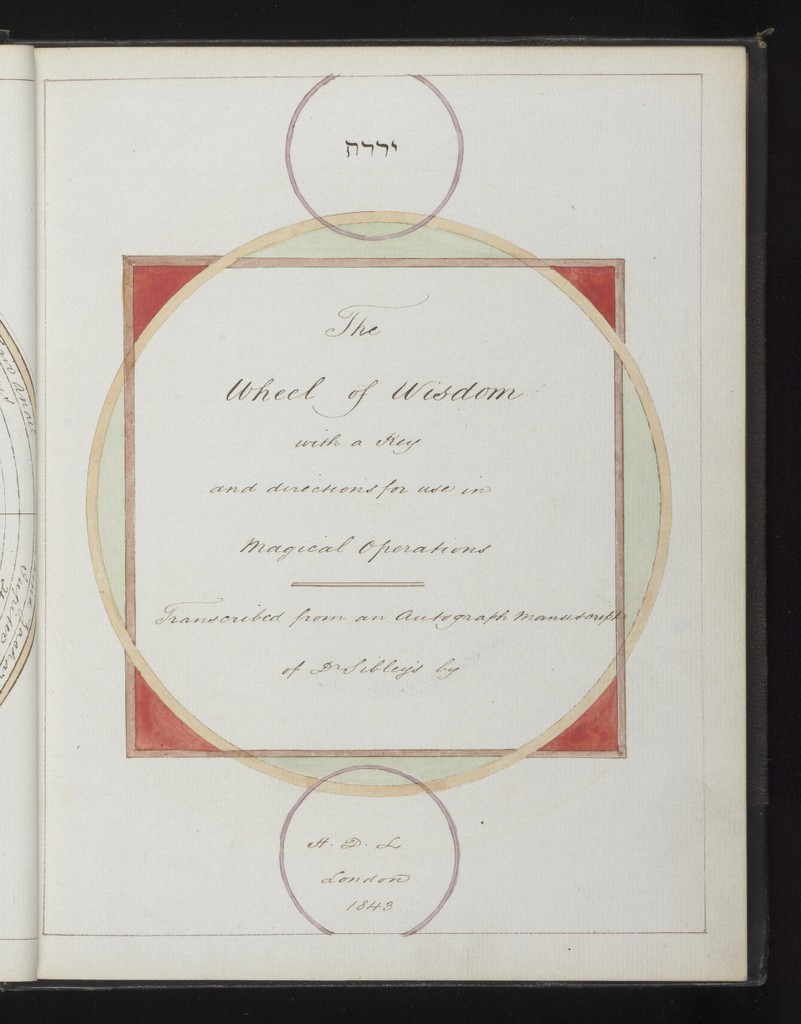 יררה
The
Wheel of Wisdom
with a Key
and directions for use in
Magical Operations
Transcribed from an Autograph Manuscript
of Dr Sibley's by
H. D. L
London
1843